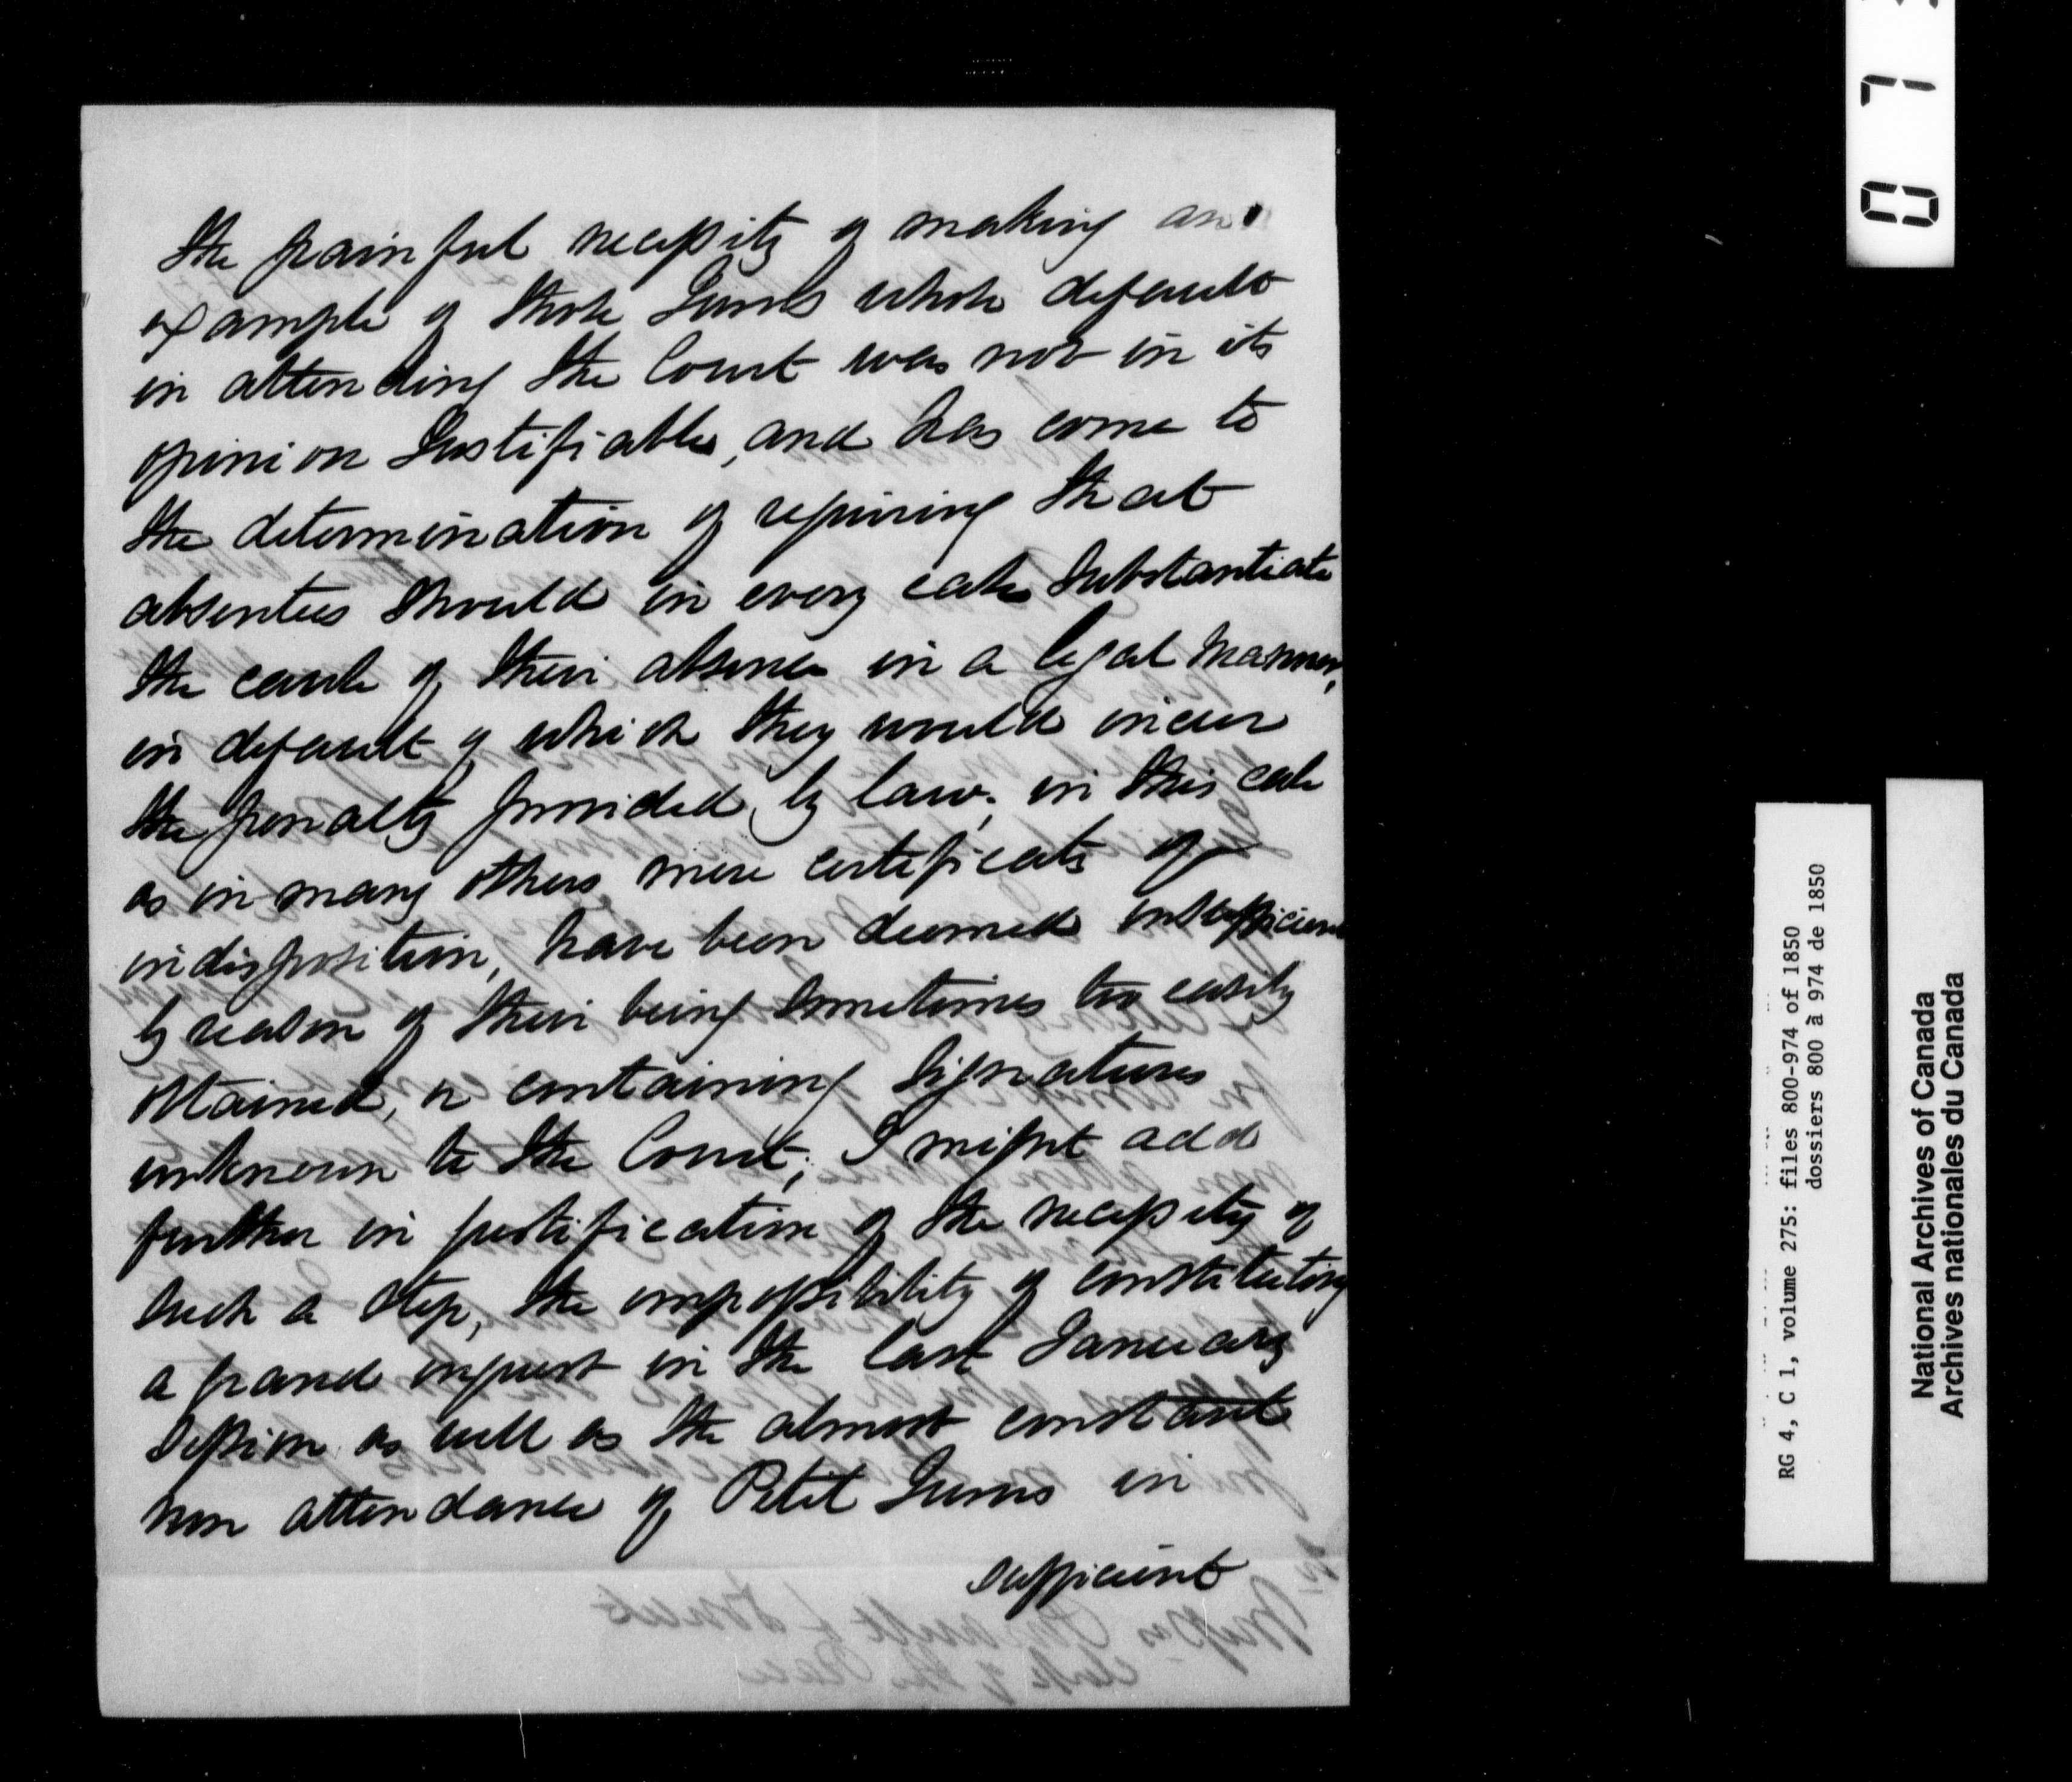 the painful necessity of making an
example of those Jurors whose default
in attending the Court was not in its
opinion Justifiable, and has come to
the determination of requiring that
absentees should in every case substantiate
the cause of their absence in a legal manner,
in default of which they would incur
the penalty provided by law; in this case
as in many others, mere certificate of
indisposition, have been deemed insufficient
by reason of their being sometimes too easily
obtained, or containing signatures
unknown to the Court; I might add
further in justification of the necessity of
such a step, the impossibility of constituting
a grand inquest in the last January
Session as well as the almost constant
non attendance of Petit Jurors in
sufficient
073
RG 4, C 1, volume 275: files 800-974 of 1850
dossiers 800 à 974 de 1850
National Archives of Canada
Archives nationales du Canada